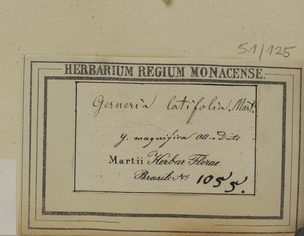 51/125
HERBARIUM REGIUM MONACENSE.
Gesneria latifolia. Mart.
G. magnifica Otto & Dietr.
Martii Herbar. Florae
Brasil. No. 1055.